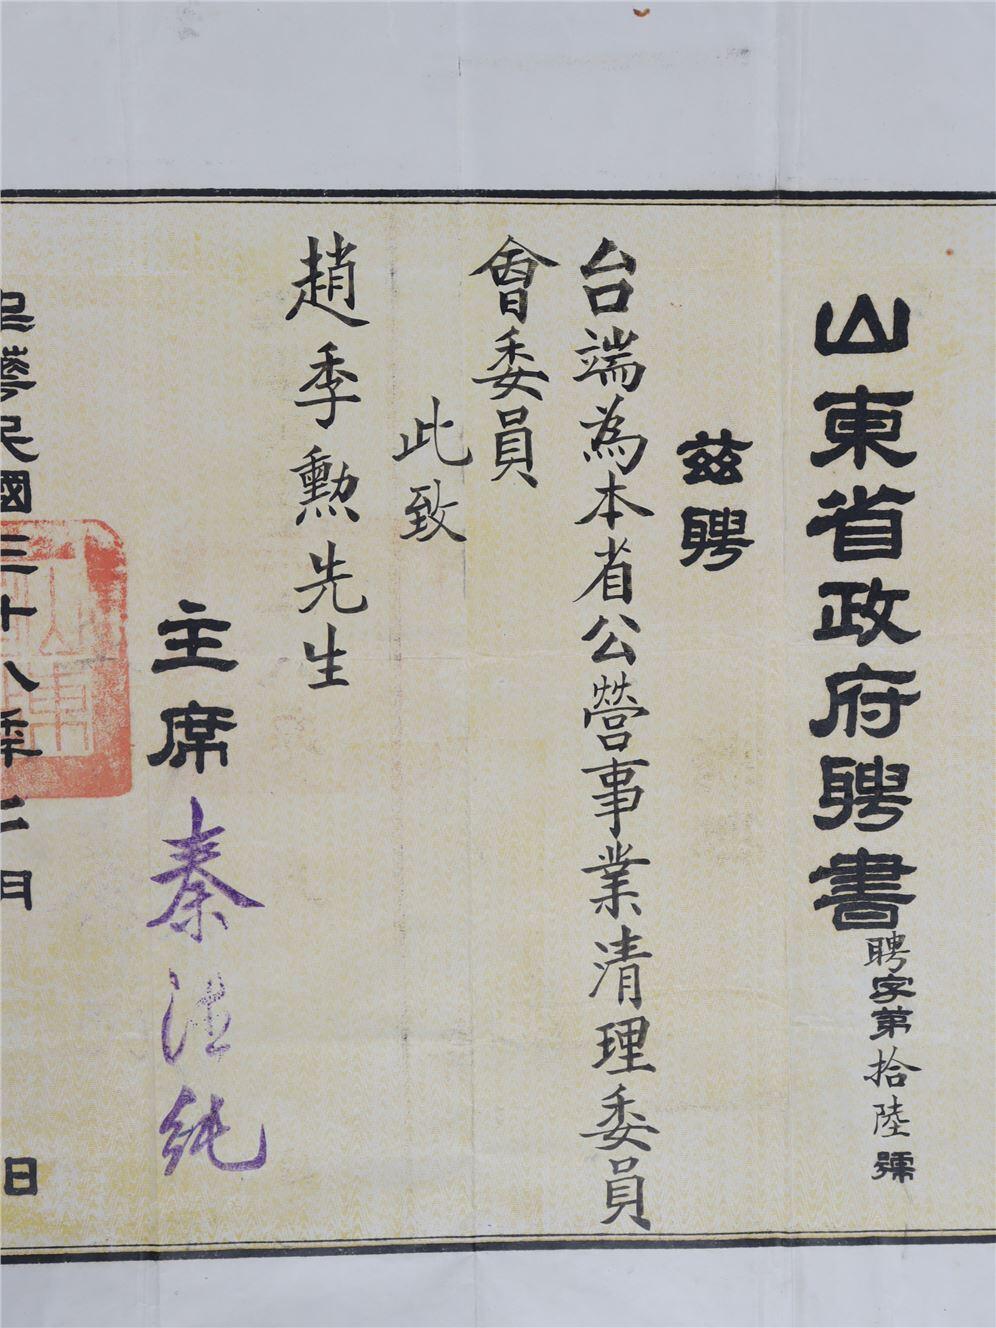 山東省政府聘書
聘字第拾陸號
茲聘
台端為本省公營事業清理委員
會委員
此致
趙季勳先生
主席秦德純
中華民國三十八年二月 日